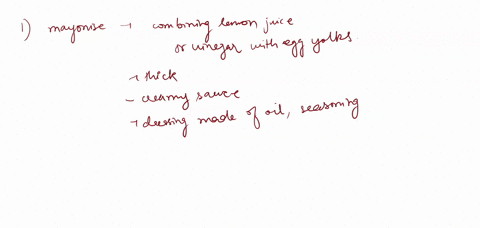 1) mayonise → combining lemon juice
or vinegar with egg yolks
→ thick
- creamy sauce
→ dressing made of oil, seasoning